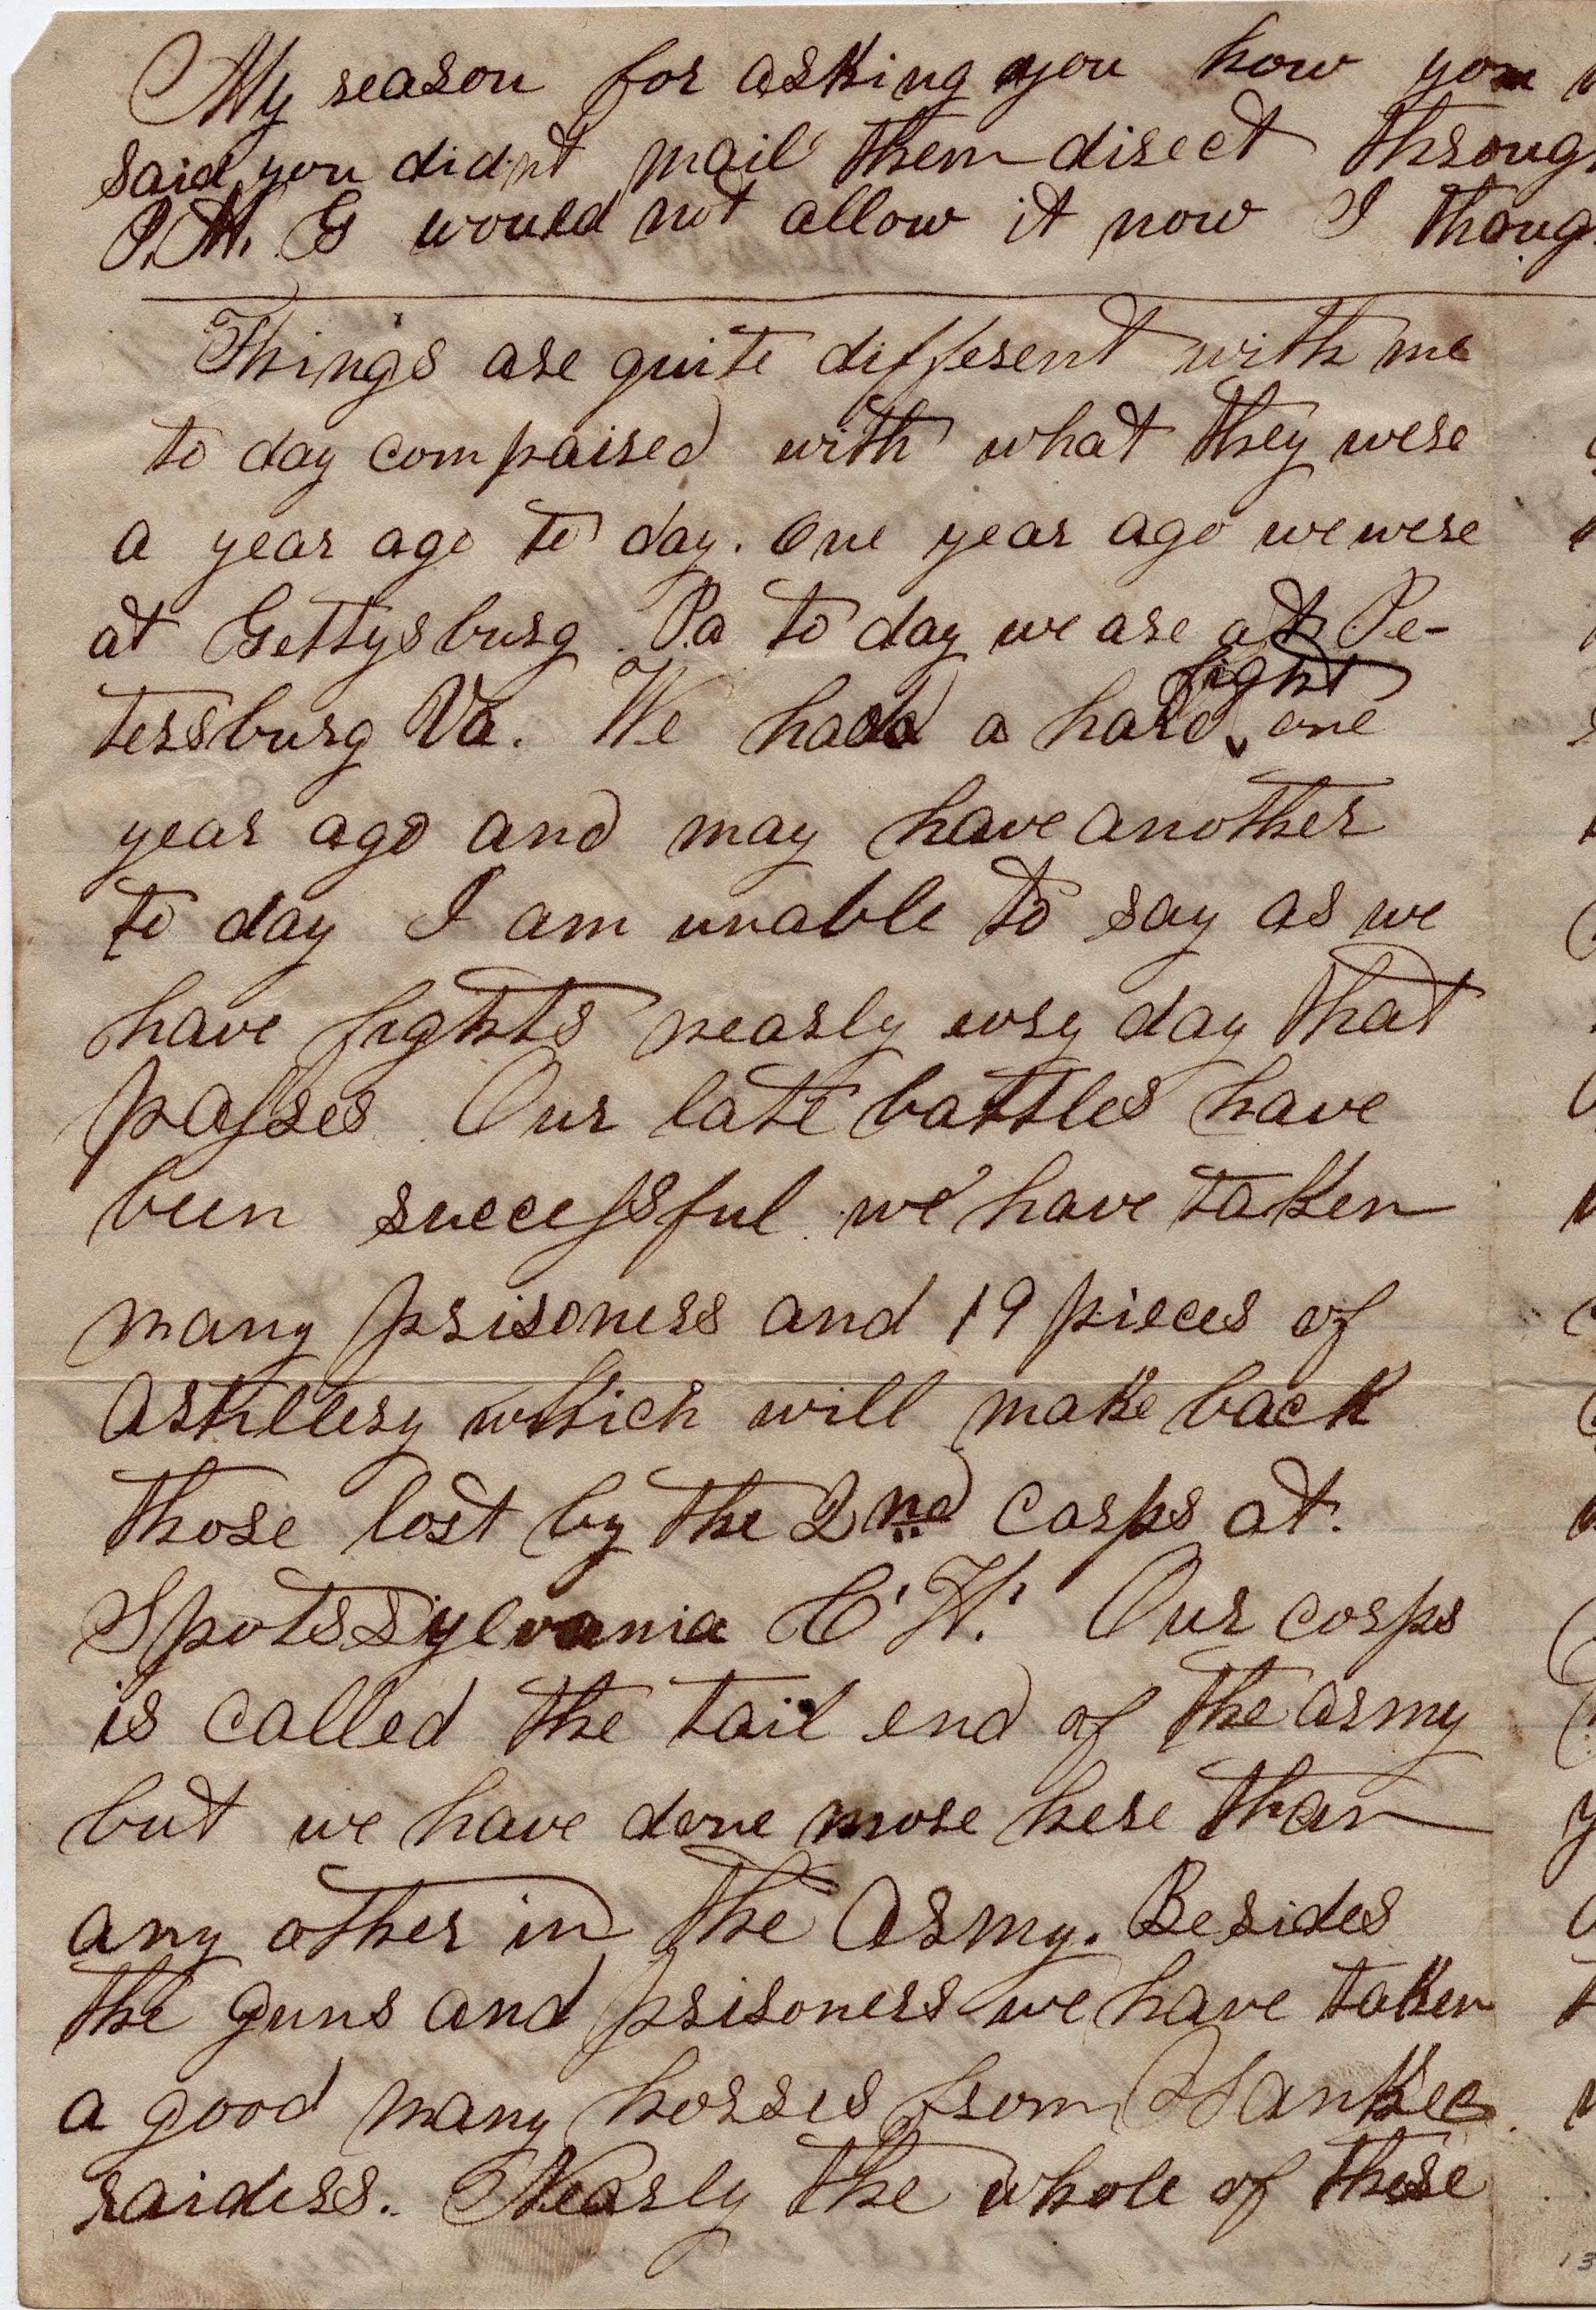 My reason for asking you how you
said you didnt mail them direct throug
P.M. G would not allow it now I thoug
Things are quite different with me
to day compaired with what they were
a year ago to day. One year ago we were
at Gettysburg Pa to day we are at Pe-
tersburg Va. We had a hard fight one
year ago and may have another
to day I am unable to say as we
have fights nearly evry day that
passes. Our late battles have
been successful. we have taken
many prisoners and 19 pieces of
Artillery which will make back
those lost by the 2nd corps at
Spottssylvania C. H. Our corps
is called the tail end of the army
but we have done more here than
any other in the Army. Besides
the guns and prisoners we have taken
a good many horses from Yankee
raiders. Nearly the whole of these
13